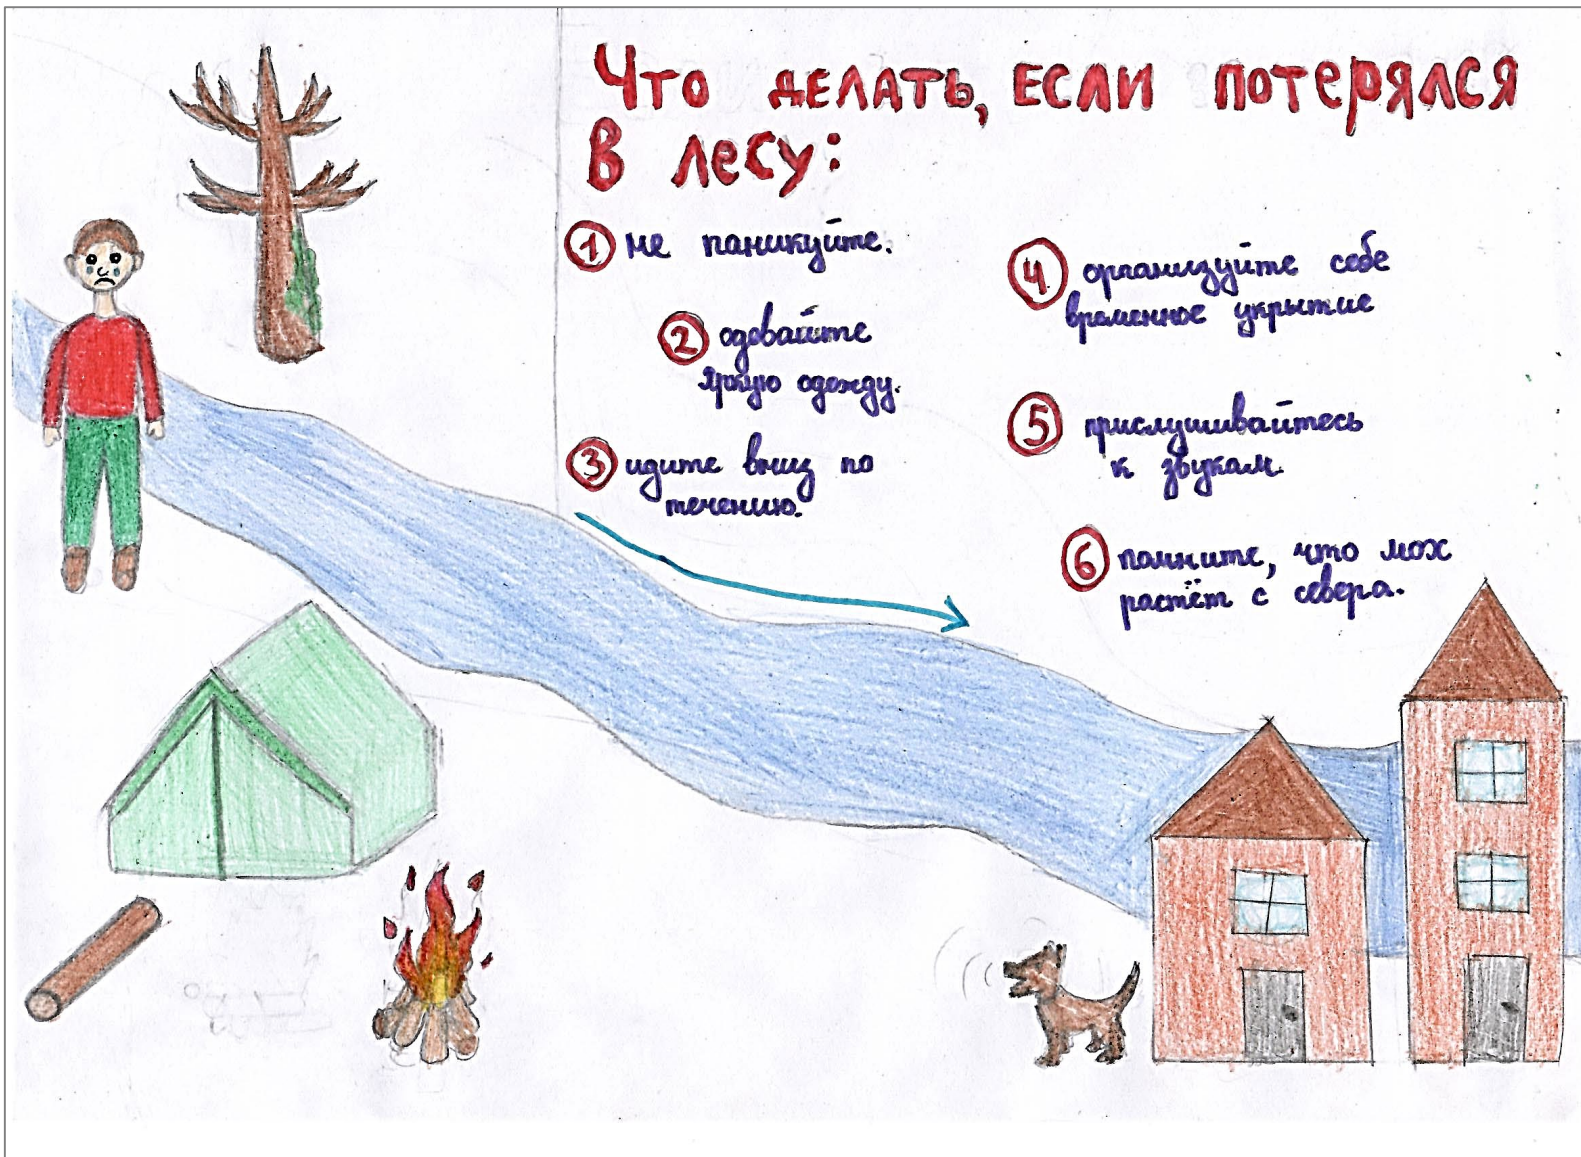 Что делать, если потерялся
в лесу:
1 не паникуйте.
2 одевайте
яркую одежду.
3 идите вниз по
течению.
4 организуйте себе
временное укрытие
5 прислушивайтесь
к звукам.
6 помните, что мох
растёт с севера.